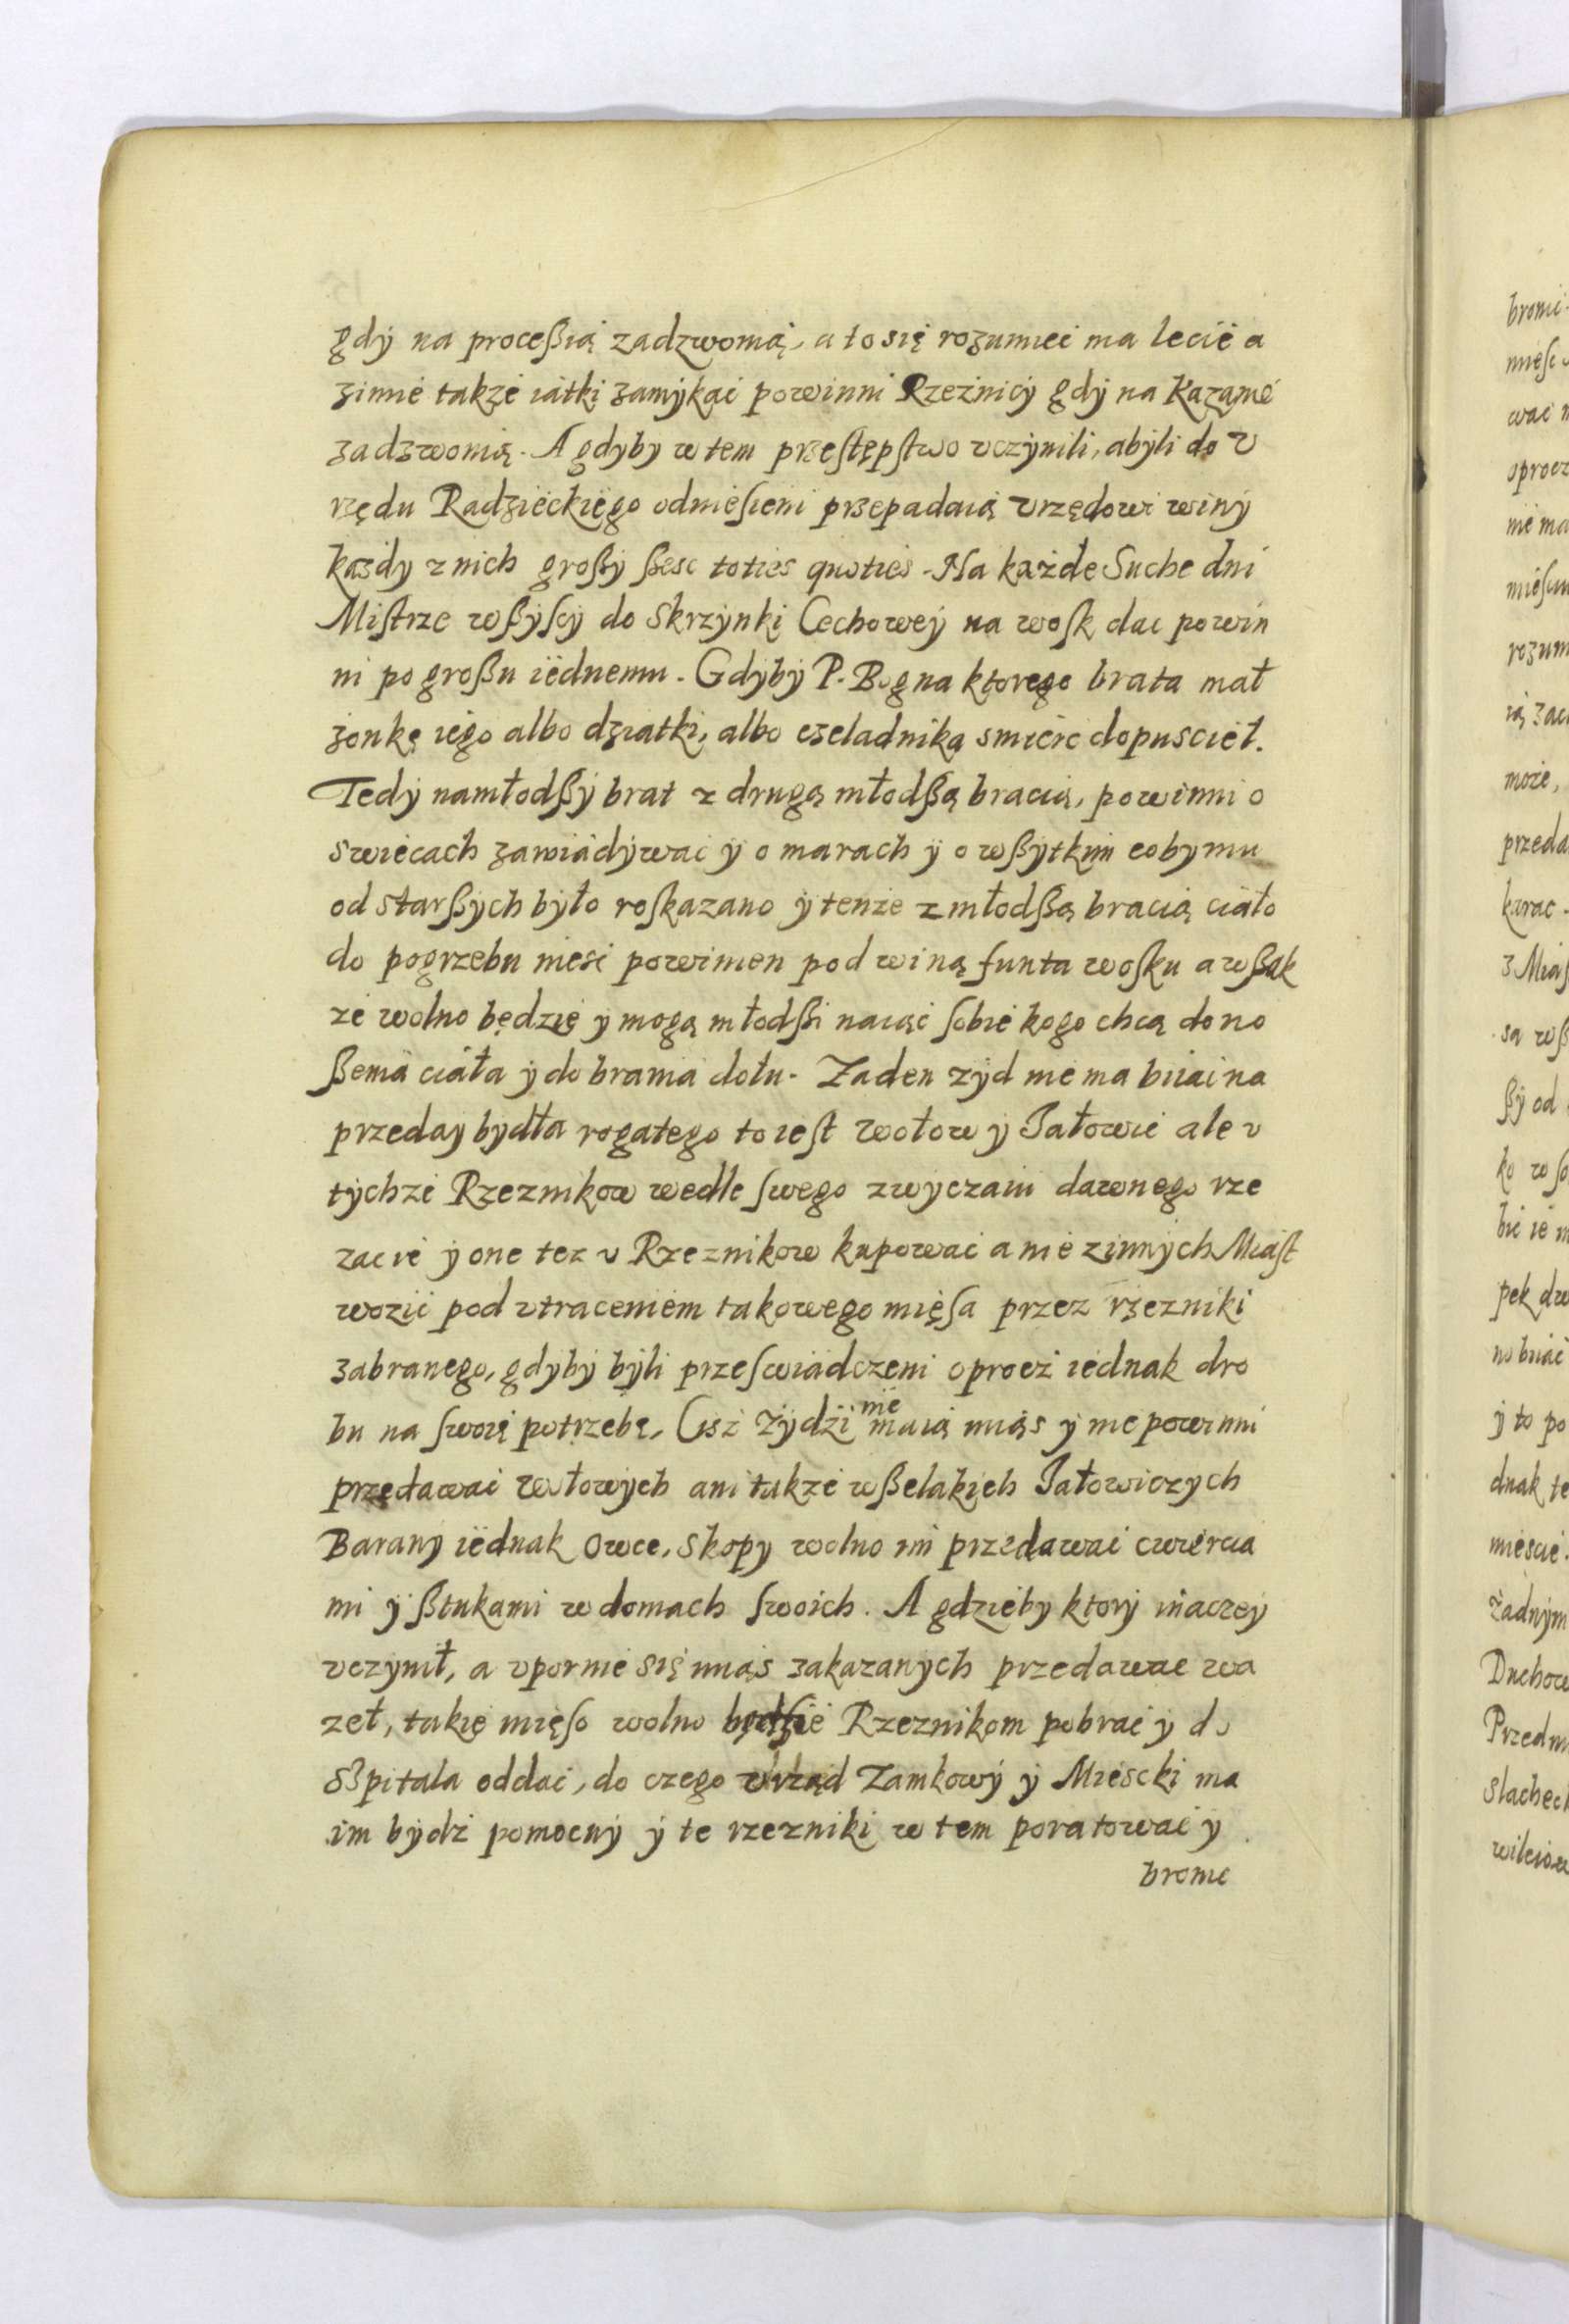 gdy na proceßią zadzwonią, a to się rozumieć ma lecie a
zimie także iatki zamykać powinni Rzeźnicy gdy na Kazanié
zadzwonią. A gdyby w tem przestępstwo vczynili, a byli do V
rzędu Radzieckiego odniesieni przepadaią Vrzędowi winy
każdy z nich großy ßesc toties quoties. Na każde Suche dni
Mistrze wßyscy do Skrzynki Cechowey na wosk dac powin
ni po großu iednemu. Gdyby P. Bog na ktorego brata mał
żonkę iego albo dziatki, albo czeladnika smierc dopusciel.
Tedy namłodßy brat z drugą młodßą bracią, powinni o
swiecach zawiadywac y o marach y o wßytkim coby mu
od starßych było roskazano y tenże z młodßą bracią ciało
do pogrzebu niesc powinien pod winą funta wosku a wßak
że wolno będzie y mogą młodßi naiąć sobie kogo chcą do no
ßenia ciała y do brania dołu. Zaden zyd nie ma biiac na
przeday bydła rogatego to iest Wołow y Jałowic ale v
tychże Rzeznikow wedle swego zwyczaiu dawnego rze
zac ie y one tez v Rzeznikow kupować a nie z innych Miast
wozić pod vtraceniem takowego mięsa przez rzezniki
zabranego, gdyby byli przeswiadczeni oprocz iednak dro
bu na swoię potrzebę, Cisz Żydzi nie maią mięs y nie powinni
przedawac Wołowych ani także wßelakich Jałowiczych
Barany iednak Owce, Skopy wolno im przedawac cwiercia
mi y ßtukami w domach swoich. A gdzieby ktory inaczey
vczynił, a vpornie się mięs zakazanych przedawac wa
zeł, takie mięso wolno będzie Rzeznikom pobrać y do
Szpitala oddać, do czego Vrząd Zamkowy y Miescki ma
im bydź pomocny y te rzezniki w tem poratować y
bronic